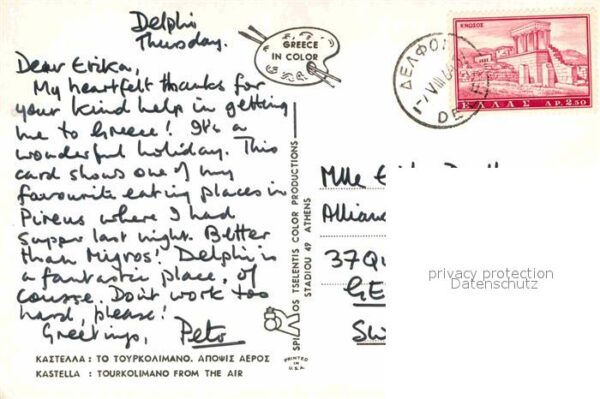 Delphi
Thursday.
Dear Erika,
My heartfelt thanks for
your kind help in getting
me to Greece! It's a
wonderful holiday. This
card shows one of my
favourite eating places in
Pireus where I had
supper last night. Better
than Migros! Delphi is
a fantastic place, of
course. Don't work too
hard, please!
Greetings, Peto
ΚΑΣΤΕΛΛΑ : ΤΟ ΤΟΥΡΚΟΛΙΜΑΝΟ. ΑΠΟΨΙΣ ΑΕΡΟΣ
KASTELLA : TOURKOLIMANO FROM THE AIR
GREECE
IN COLOR
SPI OS TSELENTIS COLOR PRODUCTIONS
STADIOU 49 ATHENS
PRINTED IN
U.S.A.
ΔΕΛΦΟΙ
VIII
DE
ΚΝΩΣΟΣ
ΕΛΛΑΣ ΔΡ. 2.50
Mlle
Allian
37 Qu
GE
SW
privacy protection
Datenschutz